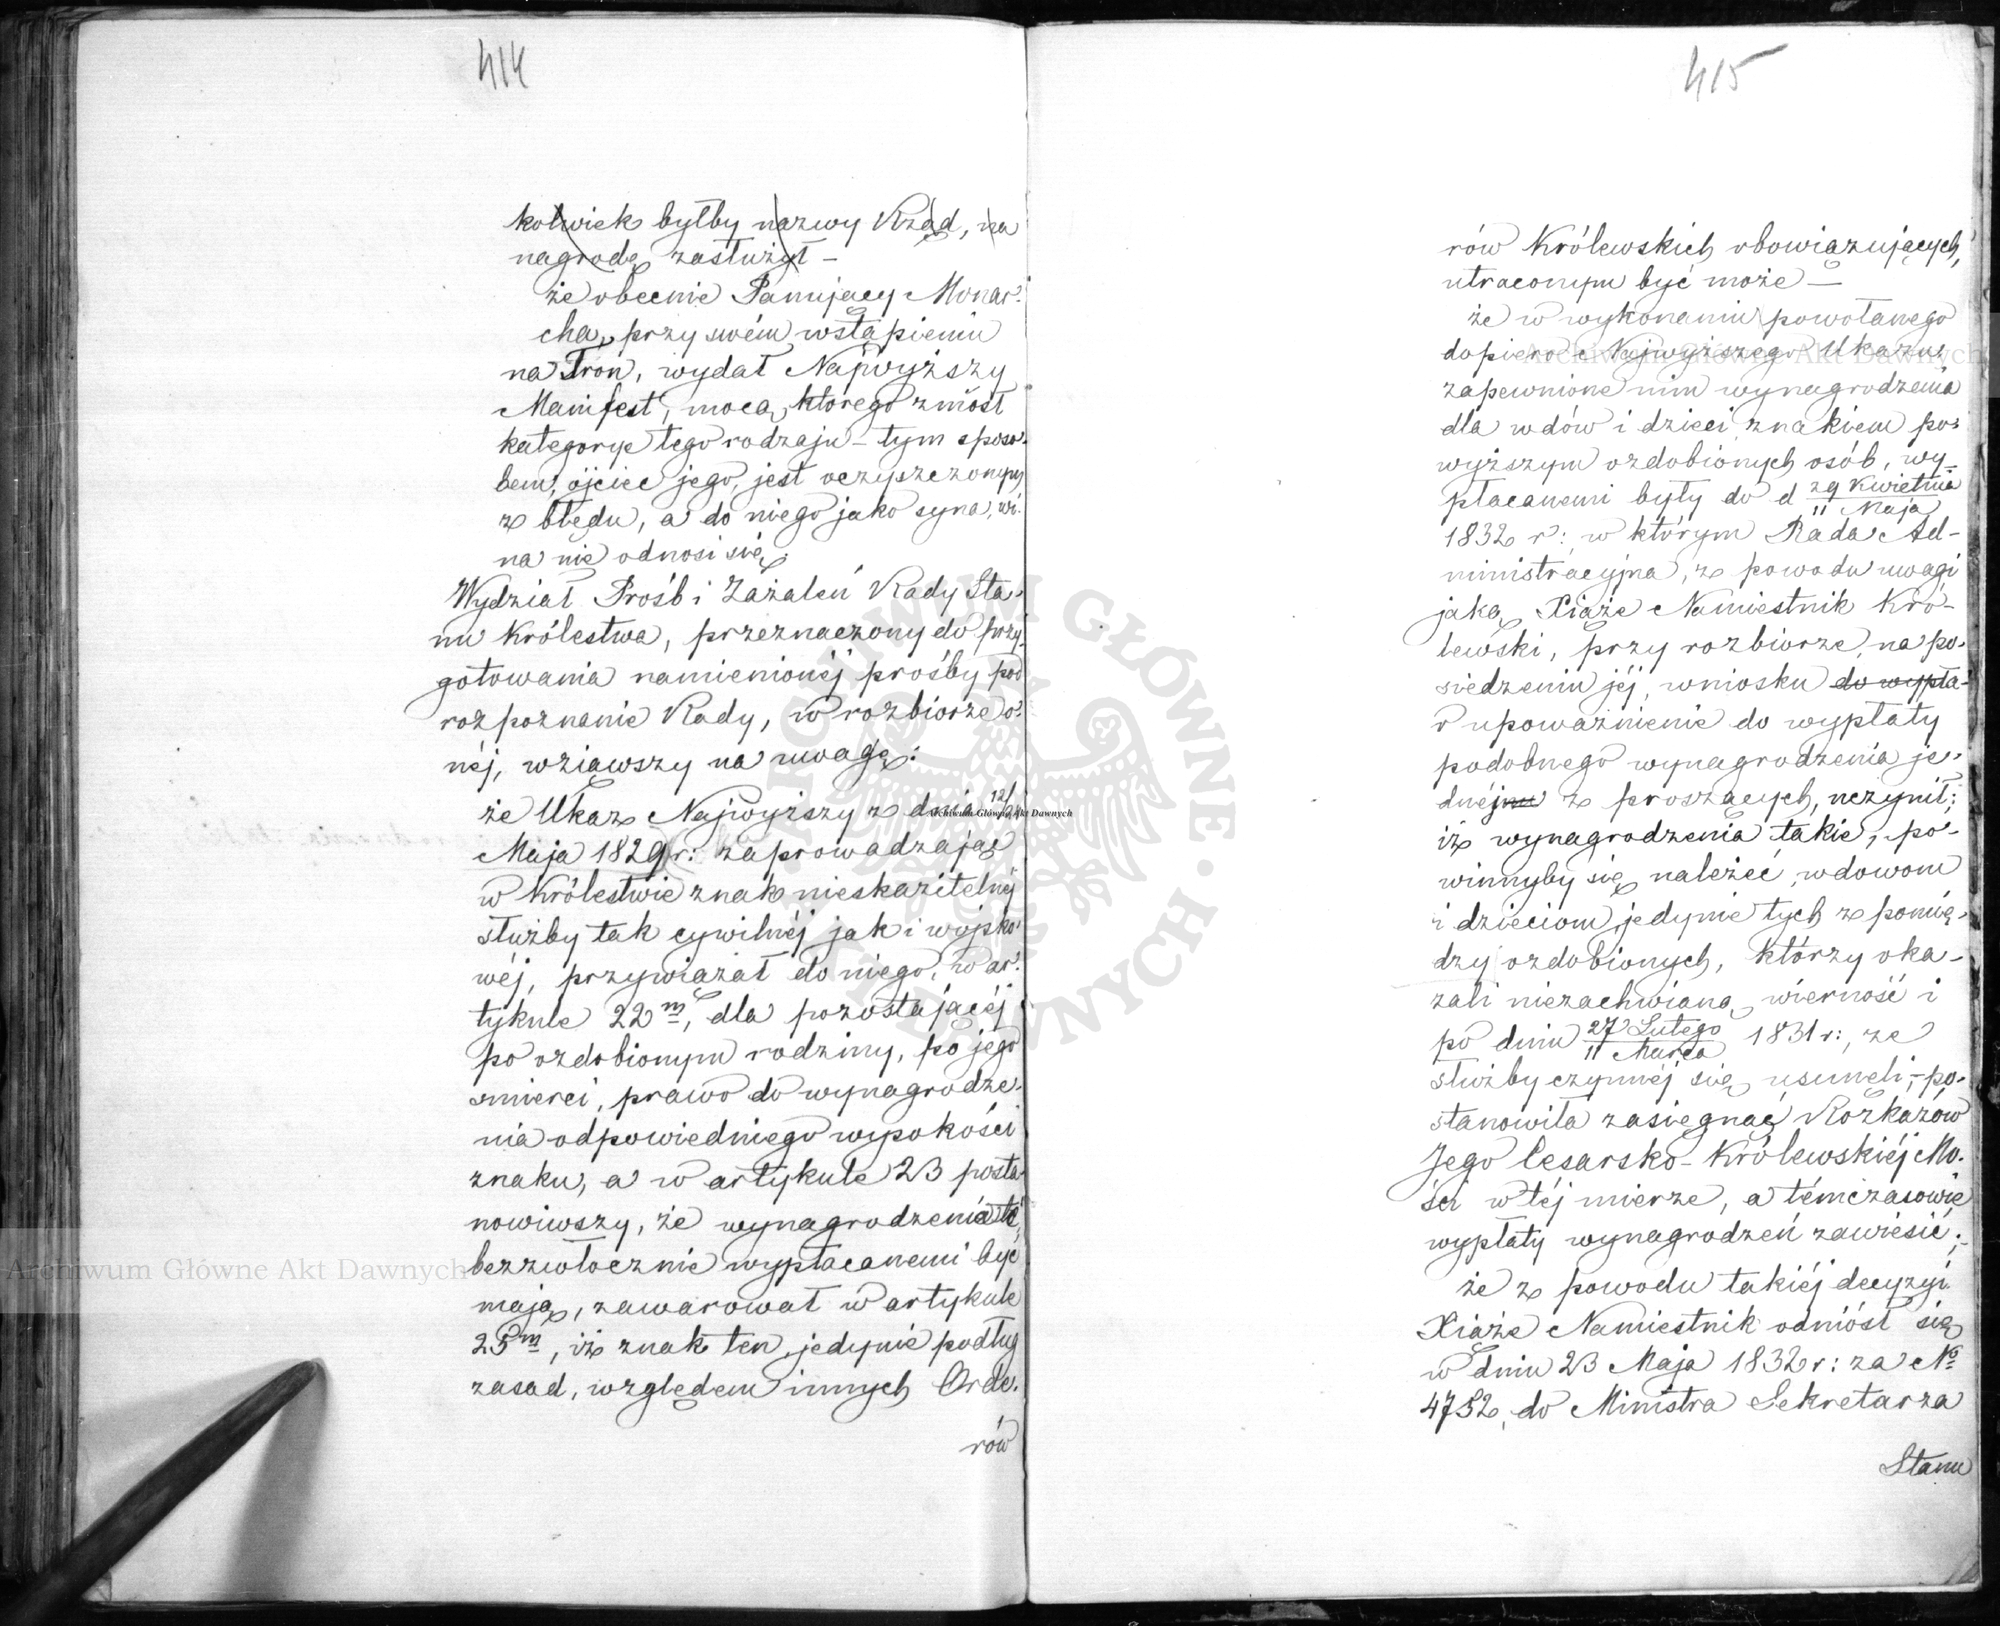 414
kolwiek byłby nazwy Rząd, na
nagrodę zasłużył —
że obecnie Panujący Monar-
cha, przy swém wstąpieniu
na Tron, wydał Najwyższy
Manifest, mocą którego zniósł
kategorye tego rodzaju – tym sposo-
bem, ojciec jego, jest oczyszczonym
z błędu, a do niego jako syna, wi-
na nie odnosi się.
Wydział Próśb i Zażaleń Rady Sta-
nu Królestwa, przeznaczony do przy-
gotowania namienionéj prośby pod
rozpoznanie Rady, w rozbiorze o-
néj, wziąwszy na uwagę:
że Ukaz Najwyższy z dnia
Maja 1829 r: zaprowadzając
w Królestwie znak nieskazitelnéj
służby tak cywilnéj jak i wojsko-
wéj, przywiązał do niego, w ar-
tykule 22m, dla pozostającéj
po ozdobionym rodziny, po jego
śmierci, prawo do wynagrodze-
nia odpowiedniego wysokości
znaku, a w artykule 23 posta-
nowiwszy, że wynagrodzenia té,
bezzwłocznie wypłacanemi być
mają, zawarował w artykule
25m, iż znak ten, jedynie podług
zasad, względem innych Orde-
rów
415
rów Królewskich obowiązujących,
utraconym być może —
że w wykonaniu powołanego
dopiero Najwyższego Ukazu,
zapewnione nim wynagrodzenia
dla wdów i dzieci znakiem po-
wyższym ozdobionych osób, wy-
płacanemi były do d 29 Kwietnia
11 Maja
1832 r: w którym Rada Ad-
ministracyjna, z powodu uwagi
jaką Xiąże Namiestnik Kró-
lewski, przy rozbiorze, na po-
siedzeniu jéj, wniosku do wypła-
o upoważnienie do wypłaty
podobnego wynagrodzenia je-
dnéj z proszących, uczynił:
iż wynagrodzenia takie, po-
winnyby się należeć, wdowom
i dzieciom, jedynie tych z pomię-
dzy ozdobionych, którzy oka-
zali niezachwianą wierność i
po dniu 27 Lutego 1831 r:, ze
11 Marca
służby czynnéj się usunęli, – po-
stanowiła zasięgnąć Rozkazów
Jego Cesarsko-Królewskiéj Mo-
ści w téj mierze, a témczasowie
wypłaty wynagrodzeń zawiesić;
że z powodu takiéj decyzyi
Xiąże Namiestnik odniósł się
w dniu 23 Maja 1832 r: za No
4752, do Ministra Sekretarza
Stanu
Archiwum Główne Akt Dawnych
Archiwum Główne Akt Dawnych
Archiwum Główne Akt Dawnych
ARCHIWUM GŁÓWNE AKT DAWNYCH